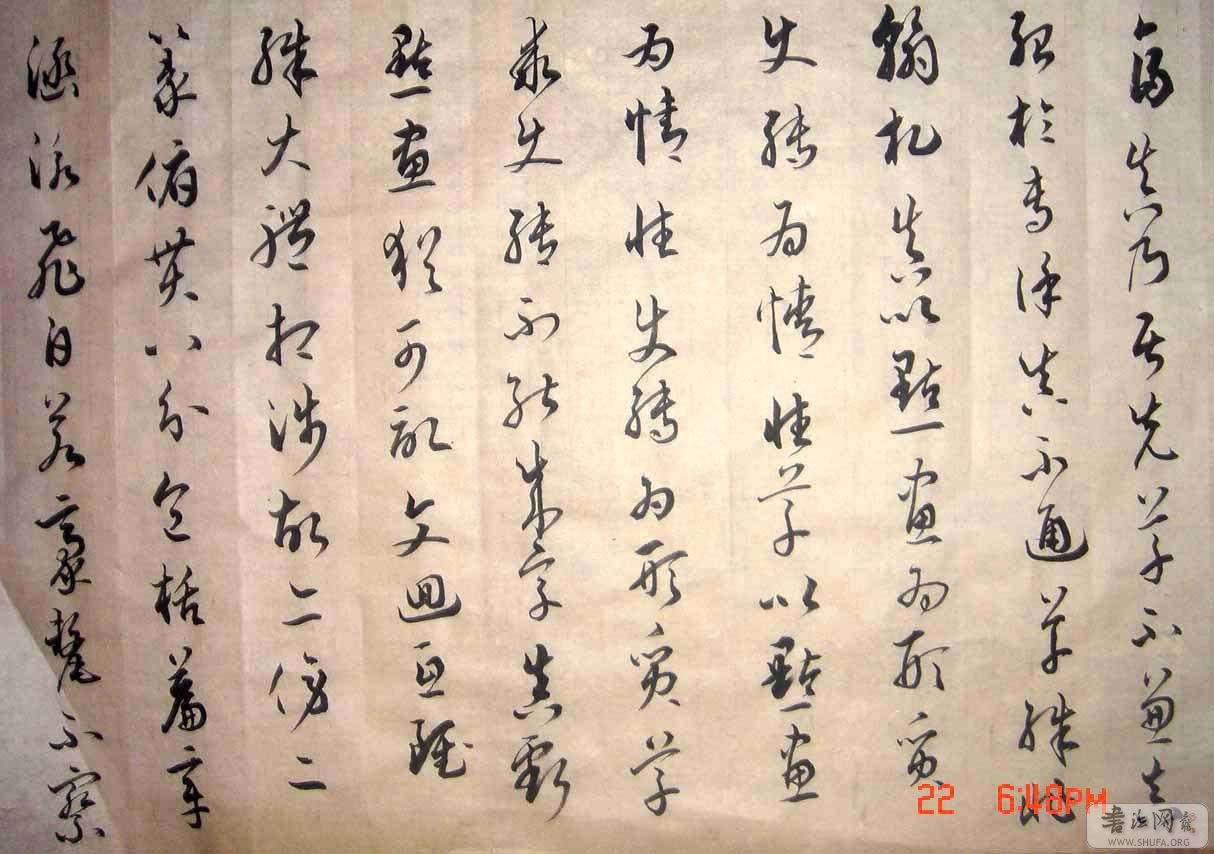 畐真乃居先草不兼真
殆於專謹真不通草殊非
翰札真以點畫為形質
使轉為情性草以點畫
為情性使轉為形質草
乖使轉不能成字真虧
點畫猶可記文迴互雖
殊大體相涉故亦傍二
篆俯貫八分包括篇章
涵泳飛白若毫釐不察
22 6:48PM
书法网
WWW.SHUFA.ORG